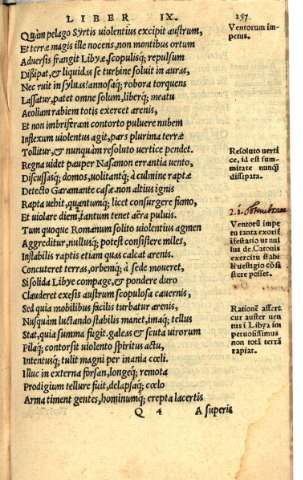 LIBER IX. 257
Quàm pelago Syrtis violentius excipit austrum,
Et terræ magis ille nocens, non montibus ortum
Adversis frangit Libye, scopulisq; repulsum
Dissipat, & liquidas se turbine soluit in auras,
Nec ruit in sylvas, annosaq; robora torquens
Lassatur, patet omne solum, liberq; meatu
Aeoliam rabiem totis exercet arenis,
Et non imbriferam contorto puluere nubem
Inflexum violentus agit, pars plurima terræ
Tollitur, & nunquàm resoluto vertice pendet.
Regna videt pauper Nasamon errantia uento,
Discussasq; domos, volitantq; à culmine raptæ
Detecto Garamante casæ non altius ignis
Rapta uehit, quantumq; licet consurgere fumo,
Et violare diem, tantum tenet aëra puluis.
Tum quoque Romanum solito uiolentius agmen
Aggreditur, nullusq; potest consistere miles,
Instabilis raptis etiam quas calcat arenis.
Concuteret terras, orbemq; à sede moueret,
Si solida Libye compage, & pondere duro
Clauderet exesis austrum scopulosa cauernis,
Sed quia mobilibus facilis turbatur arenis,
Nusquàm luctando stabilis manet, imaq; tellus
Stat, quia summa fugit. galeas & scuta uirorum
Pilaq; contorsit uiolento spiritus actu,
Intentusq; tulit magni per inania cœli.
Illuc in externa forsan, longeq; remota
Prodigium tellure fuit, delapsaq; cœlo
Arma timent gentes, hominumq; erepta lacertis
Q 4 A superis
Ventorum im-
petus.
Resoluto verti
ce, id est sum
mitate nunq̃
dissipata.
Ventorũ impe
tu tanta exorit
uestigio cõsi
stere posset.
Rationẽ asserit
cur auster uen
tus i Libya im
petuosissimus
non totã terrã
rapiat.